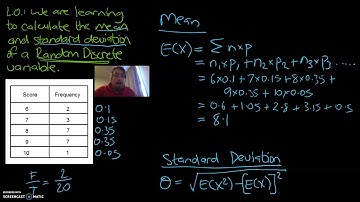 L.O.: we are learning
to calculate the mean
and standard deviation
of a Random Discrete
variable.
Score Frequency
6 2 0.1
7 3 0.15
8 7 0.35
9 7 0.35
10 1 0.05
F/T = 2/20
Mean
E(X) = ∑ n×p
= n₁×p₁ + n₂×p₂ + n₃×p₃ .....
= 6×0.1 + 7×0.15 + 8×0.35 +
9×0.35 + 10×0.05
= 0.6 + 1.05 + 2.8 + 3.15 + 0.5
= 8.1
Standard Deviation
σ = √E(X²) - [E(X)]²
RECORDED WITH
SCREENCAST-O-MATIC